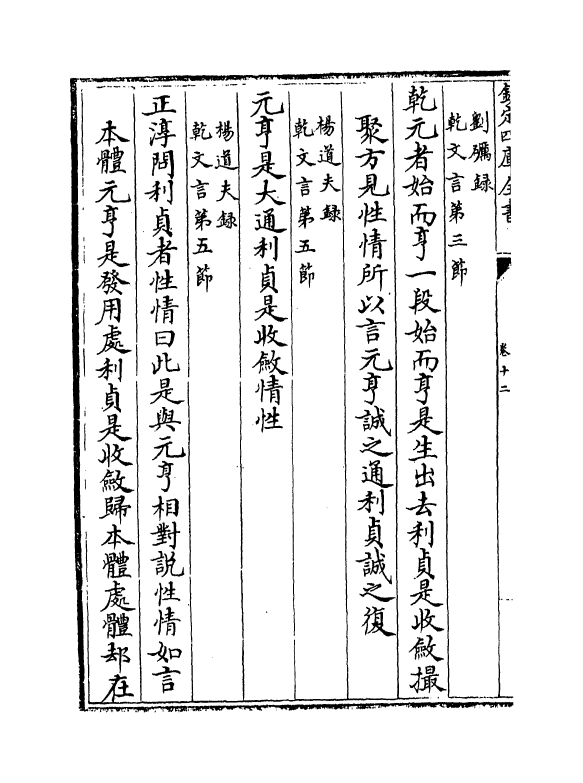 欽定四庫全書
卷十二
劉礪録
乾文言第三節
乾元者始而亨一段始而亨是生出去利貞是收斂撮
聚方見性情所以言元亨誠之通利貞誠之復
楊道夫録
乾文言第五節
元亨是大通利貞是收斂情性
楊道夫録
乾文言第五節
正淳問利貞者性情曰此是與元亨相對說性情如言
本體元亨是發用處利貞是收斂歸本體處體却在